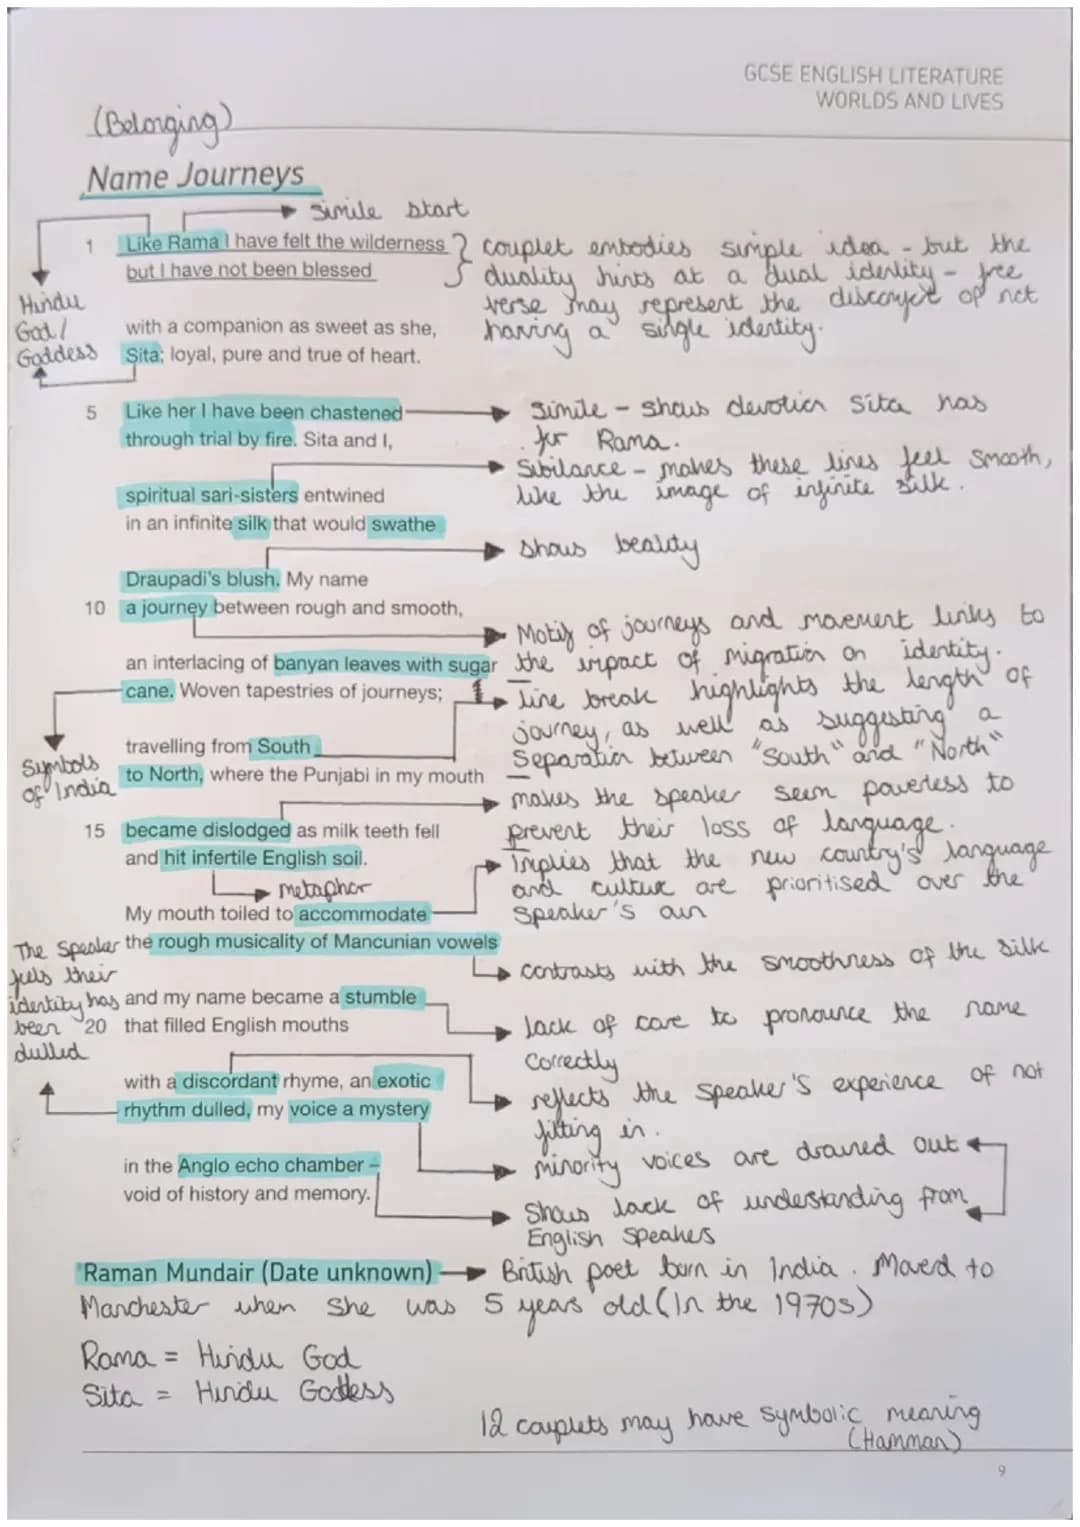 GCSE ENGLISH LITERATURE
WORLDS AND LIVES
(Belonging)
Name Journeys
simile start
1 Like Rama I have felt the wilderness
but I have not been blessed
couplet embodies simple idea - but the
duality hints at a dual identity - free
verse may represent the discomfort of not
having a single identity.
Hindu
God/
Goddess
with a companion as sweet as she,
Sita; loyal, pure and true of heart.
5 Like her I have been chastened
through trial by fire. Sita and I,
Simile - shows devotion Sita has
for Rama.
Sibilance - makes these lines feel smooth,
like the image of infinite silk.
spiritual sari-sisters entwined
in an infinite silk that would swathe
shows beauty
Draupadi's blush. My name
10 a journey between rough and smooth,
Motif of journeys and movement links to
the impact of migration on identity.
an interlacing of banyan leaves with sugar
cane. Woven tapestries of journeys;
line break highlights the length of
journey, as well as suggesting a
Separation between "South" and "North"
Symbols
of India
travelling from South
to North, where the Punjabi in my mouth
makes the speaker seem powerless to
prevent their loss of language.
15 became dislodged as milk teeth fell
and hit infertile English soil.
metaphor
Implies that the new country's language
and culture are prioritised over the
speaker's own
My mouth toiled to accommodate
the rough musicality of Mancunian vowels
contrasts with the smoothness of the silk
The Speaker
feels their
identity has
been
dulled
and my name became a stumble
20 that filled English mouths
lack of care to pronounce the name
correctly
with a discordant rhyme, an exotic
rhythm dulled, my voice a mystery
reflects the speaker's experience of not
fitting in.
minority voices are drowned out
in the Anglo echo chamber –
void of history and memory.
Shows lack of understanding from
English speakers
Raman Mundair (Date unknown) British poet born in India. Moved to
Manchester when she was 5 years old (In the 1970s)
Rama = Hindu God
Sita = Hindu Goddess
12 couplets may have symbolic meaning
(Hamman)
9